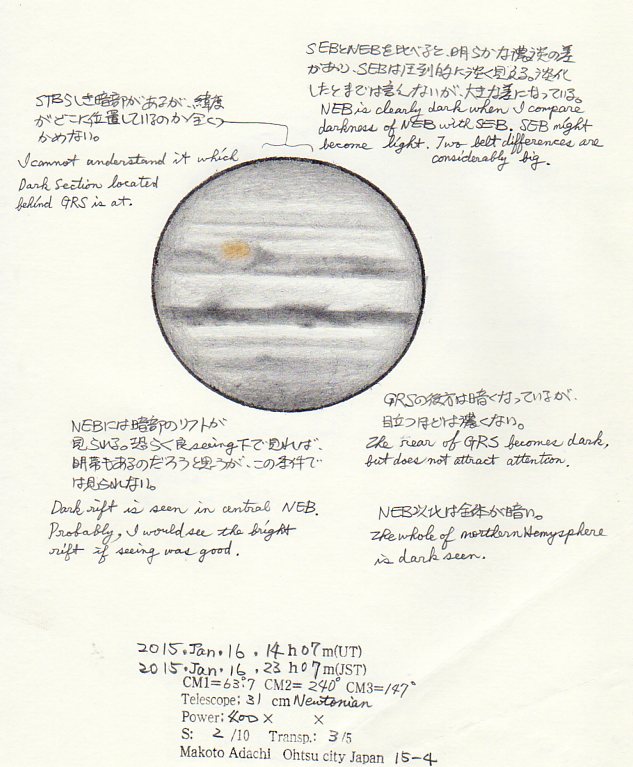 STBらしき暗部があるが、緯度
がどこに位置しているのか全くつ
かめない。
I cannot understand it which
Dark Section located
behind GRS is at.
SEBとNEBを比べると、明らかな濃淡の差
があり、SEBは圧倒的に淡く見える。淡化
したとまでは言えないが、大きな差になっている。
NEB is clearly dark when I compare
darkness of NEB with SEB. SEB might
become light. Two belt differences are
considerably big.
NEBには暗部のリフトが
見られる。恐らく良seeing下で見れば、
明帯もあるのだろうと思うが、この条件で
は見られない。
Dark rift is seen in central NEB.
Probably, I would see the bright
rift if seeing was good.
GRSの後方は暗くなっているが、
目立つほどは濃くない。
The rear of GRS becomes dark,
but does not attract attention.
NEB以北は全体が暗い。
The whole of northern Hemysphere
is dark seen.
2015.Jan.16.14h07m(UT)
2015.Jan.16.23h07m(JST)
CM1=63°7 CM2=240° CM3=147°
Telescope; 31 cm Newtonian
Power; 400× ×
S: 2/10 Transp.: 3/5
Makoto Adachi Ohtsu city Japan 15-4